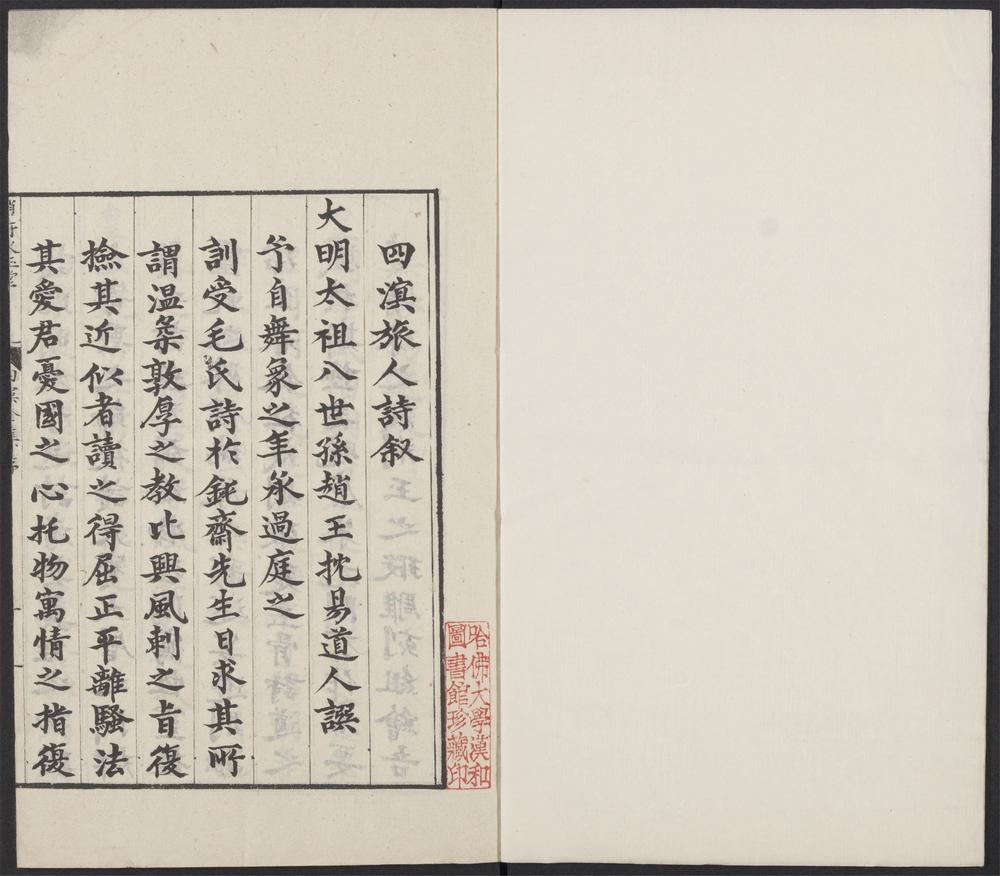 四溟旅人詩叙
大明太祖八世孫趙王枕易道人譔
予自舞象之年承過庭之
訓受毛氏詩於鈍齋先生日求其所
謂温柔敦厚之教比興風刺之旨復
撿其近似者讀之得屈正平離騷法
其愛君憂國之心托物寓情之指復
哈佛大學漢和
圖書館珍藏印